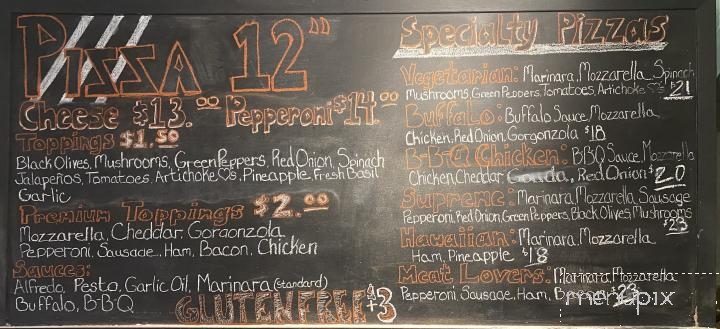 Pizza 12"
Cheese $13.00 Pepperoni $14.00
Toppings $1.50
Black Olives, Mushrooms, Green Peppers, Red Onion, Spinach
Jalapeños, Tomatoes, Artichoke ♡s, Pineapple, Fresh Basil
Garlic
Premium Toppings $2.00
Mozzarella, Cheddar, Gorgonzola
Pepperoni, Sausage, Ham, Bacon, Chicken
Sauces:
Alfredo, Pesto, Garlic Oil, Marinara (standard)
Buffalo, B-B-Q
GLUTEN FREE +3
Specialty Pizzas
Vegetarian: Marinara, Mozzarella, Spinach
Mushrooms, Green Peppers, Tomatoes, Artichoke ♡'s $21
Buffalo: Buffalo Sauce, Mozzarella
Chicken, Red Onion, Gorgonzola $18
B-B-Q Chicken: BBQ Sauce, Mozzarella
Chicken, Cheddar, Gouda, Red Onion $20
Supreme: Marinara, Mozzarella, Sausage
Pepperoni, Red Onion, Green Peppers, Black Olives, Mushrooms $23
Hawaiian: Marinara, Mozzarella
Ham, Pineapple $18
Meat Lovers: Marinara, Mozzarella
Pepperoni, Sausage, Ham, $23
menupix